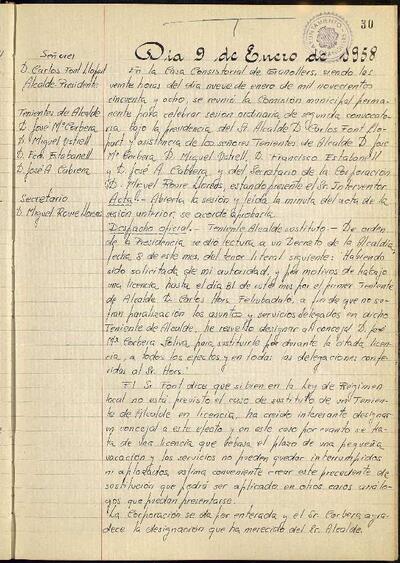 30
AYUNTAMIENTO
Día 9 de Enero de 1958
Señores
D. Carlos Font Llopart
Alcalde Presidente
Tenientes de Alcalde
D. José Mª Corbera
D. Miguel Vstrell
D. Fco. Estabanell
D. José A. Cabrera
Secretario
D. Miguel Roure Llorens
En la Casa Consistorial de Granollers, siendo las
veinte horas del día nueve de enero de mil novecientos
cincuenta y ocho, se reunió la Comisión municipal perma-
nente para celebrar sesión ordinaria de segunda convocato-
ria, bajo la presidencia del Sr. Alcalde D. Carlos Font Llo-
part y asistencia de los señores Tenientes de Alcalde D. José
Mª Corbera, D. Miguel Vstrell, D. Francisco Estabanell
y D. José A. Cabrera, y del Secretario de la Corporación
D. Miguel Roure Llorens, estando presente el Sr. Interventor.
Acta.- Abierta la sesión y leída la minuta del acta de la
sesión anterior, se acordó aprobarla.
Despacho oficial.- Teniente Alcalde sustituto.- De orden
de la Presidencia se dio lectura a un Decreto de la Alcaldía,
fecha 8 de este mes, del tenor literal siguiente: Habiendo
sido solicitada de mi autoridad, y por motivos de trabajo
una licencia hasta el día 31 de este mes por el primer Teniente
de Alcalde D. Carlos Hors, a fin de que no su-
fran paralización los asuntos y servicios delegados en dicho
Teniente de Alcalde, he resuelto designar al Concejal D. José
Mª Corbera Soliva para sustituirle durante la citada licen-
cia, a todos los efectos y en todas las delegaciones confe-
ridas al Sr. Hors.
El Sr. Font dice que si bien en la Ley de Régimen
local no está previsto el caso de sustituto de un Tenien-
te de Alcalde en licencia, ha creído interesante designar
un concejal a este efecto y en este caso por cuanto se tra-
ta de una licencia que rebasa el plazo de una pequeña
vacación y los servicios no pueden quedar interrumpidos
ni aplazados, estima conveniente crear este precedente de
sustitución que podrá ser aplicado en otros casos análo-
gos que puedan presentarse.
La Corporación se da por enterada y el Sr. Corbera agra-
dece la designación que ha merecido del Sr. Alcalde.